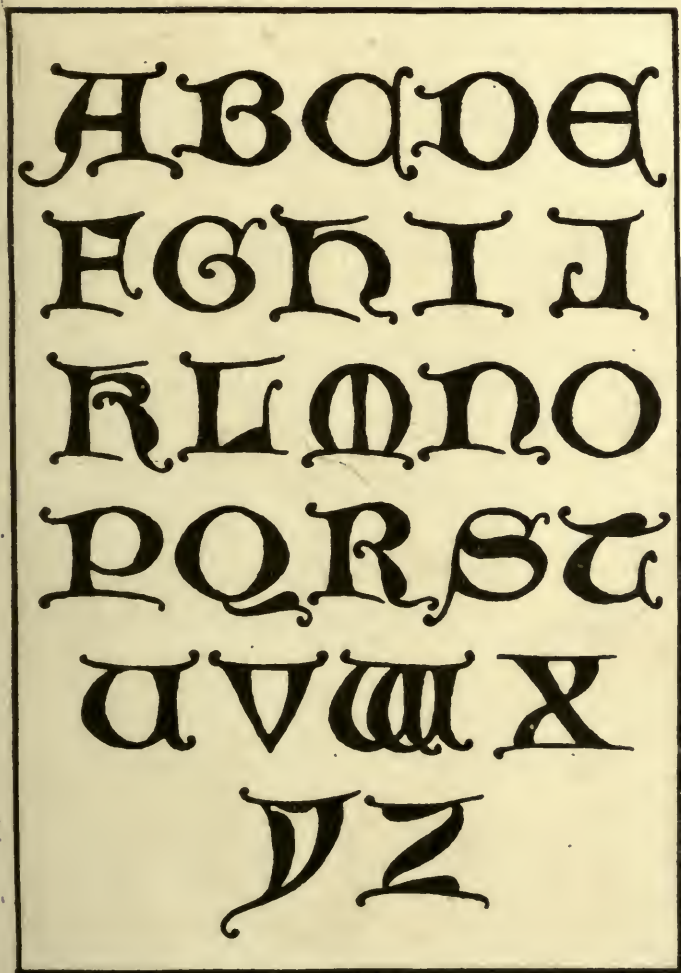 ABCDE
FGHIJ
KLMNO
PQRST
UVWX
YZ